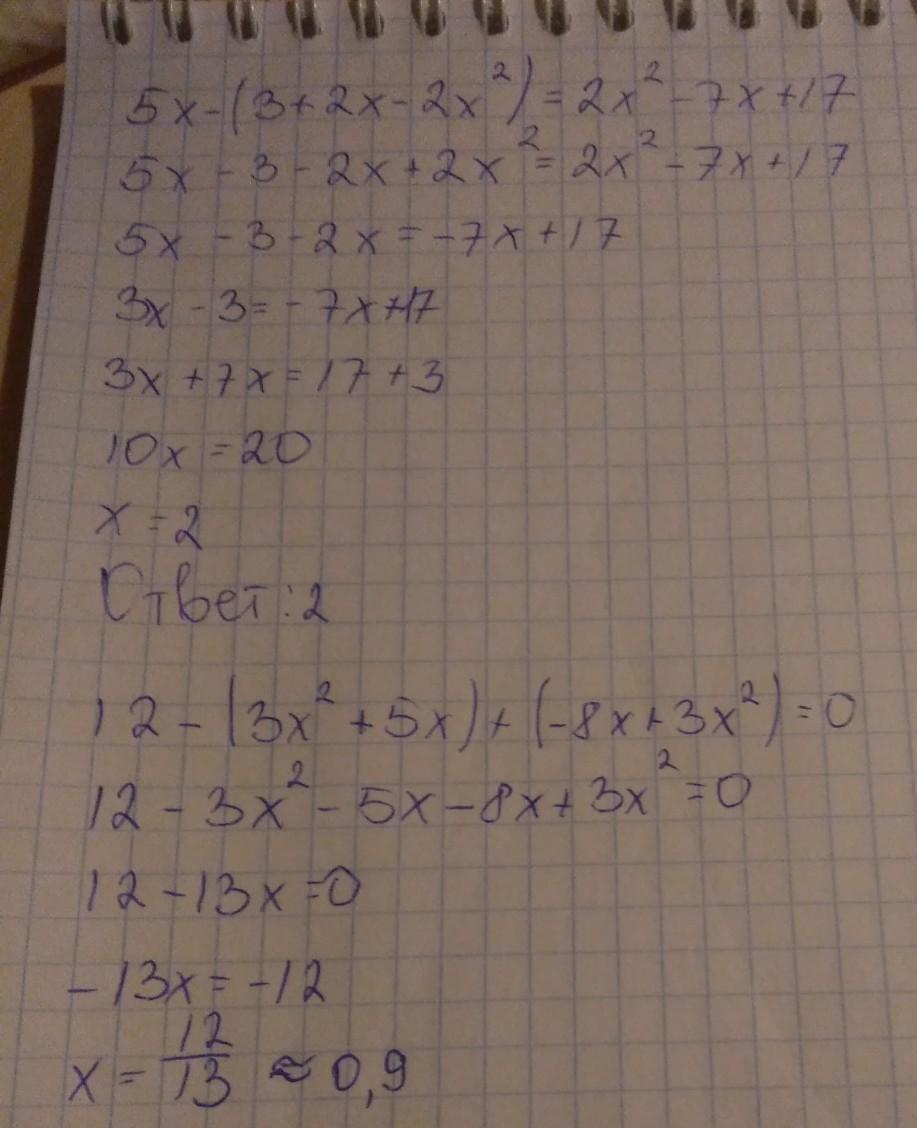 5x-(3+2x-2x²)=2x²-7x+17
5x-3-2x+2x²=2x²-7x+17
5x-3-2x=-7x+17
3x-3=-7x+17
3x+7x=17+3
10x=20
x=2
Ответ:2
12-(3x²+5x)+(-8x+3x²)=0
12-3x²-5x-8x+3x²=0
12-13x=0
-13x=-12
x=12/13≈0,9